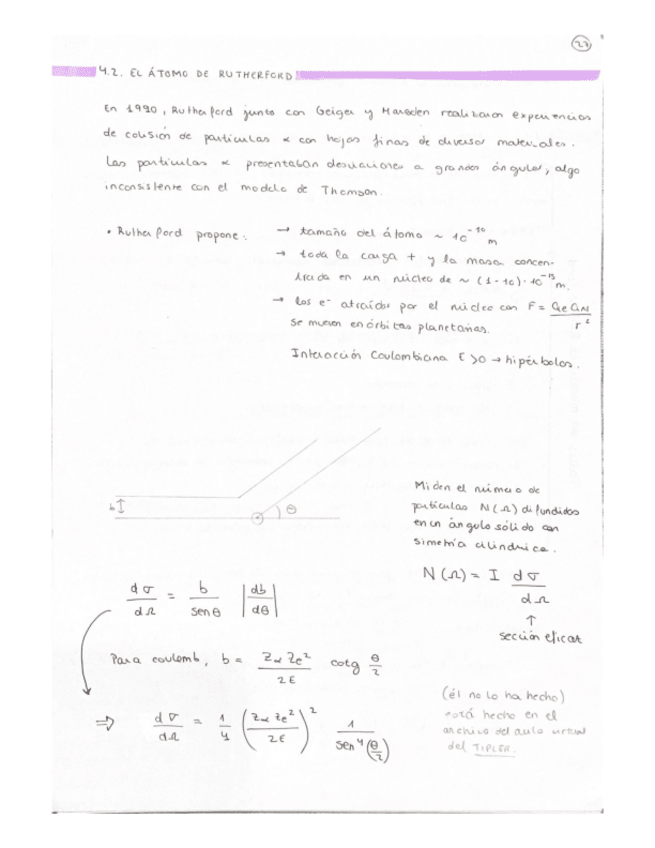 27
4.2. EL ÁTOMO DE RUTHERFORD
En 1990, Rutherford junto con Geiger y Marsden realizaron experiencias
de colisión de partículas α con hojas finas de diversos materiales.
Las partículas α presentaban desviaciones a grandes ángulos, algo
inconsistente con el modelo de Thomson.
• Rutherford propone: → tamaño del átomo ~ 10^-10 m
→ toda la carga + y la masa concen-
trada en un núcleo de ~ (1-10)·10^-15 m.
→ los e- atraídos por el núcleo con F = qe qN / r^2
se mueven en órbitas planetarias.
Interacción Coulombiana E >0 → hipérbolas.
b
θ
Miden el número de
partículas N(Ω) difundidos
en un ángulo sólido con
simetría cilíndrica.
N(Ω) = I dσ/dΩ
↑
sección eficaz
dσ/dΩ = b/senθ |db/dθ|
Para coulomb, b = Zα Ze^2 / 2E cotg θ/2
⇒ dσ/dΩ = 1/4 (Zα Ze^2 / 2E)^2 1/sen^4(θ/2)
(él no lo ha hecho)
está hecho en el
archivo del aula virtual
del TIPLER.